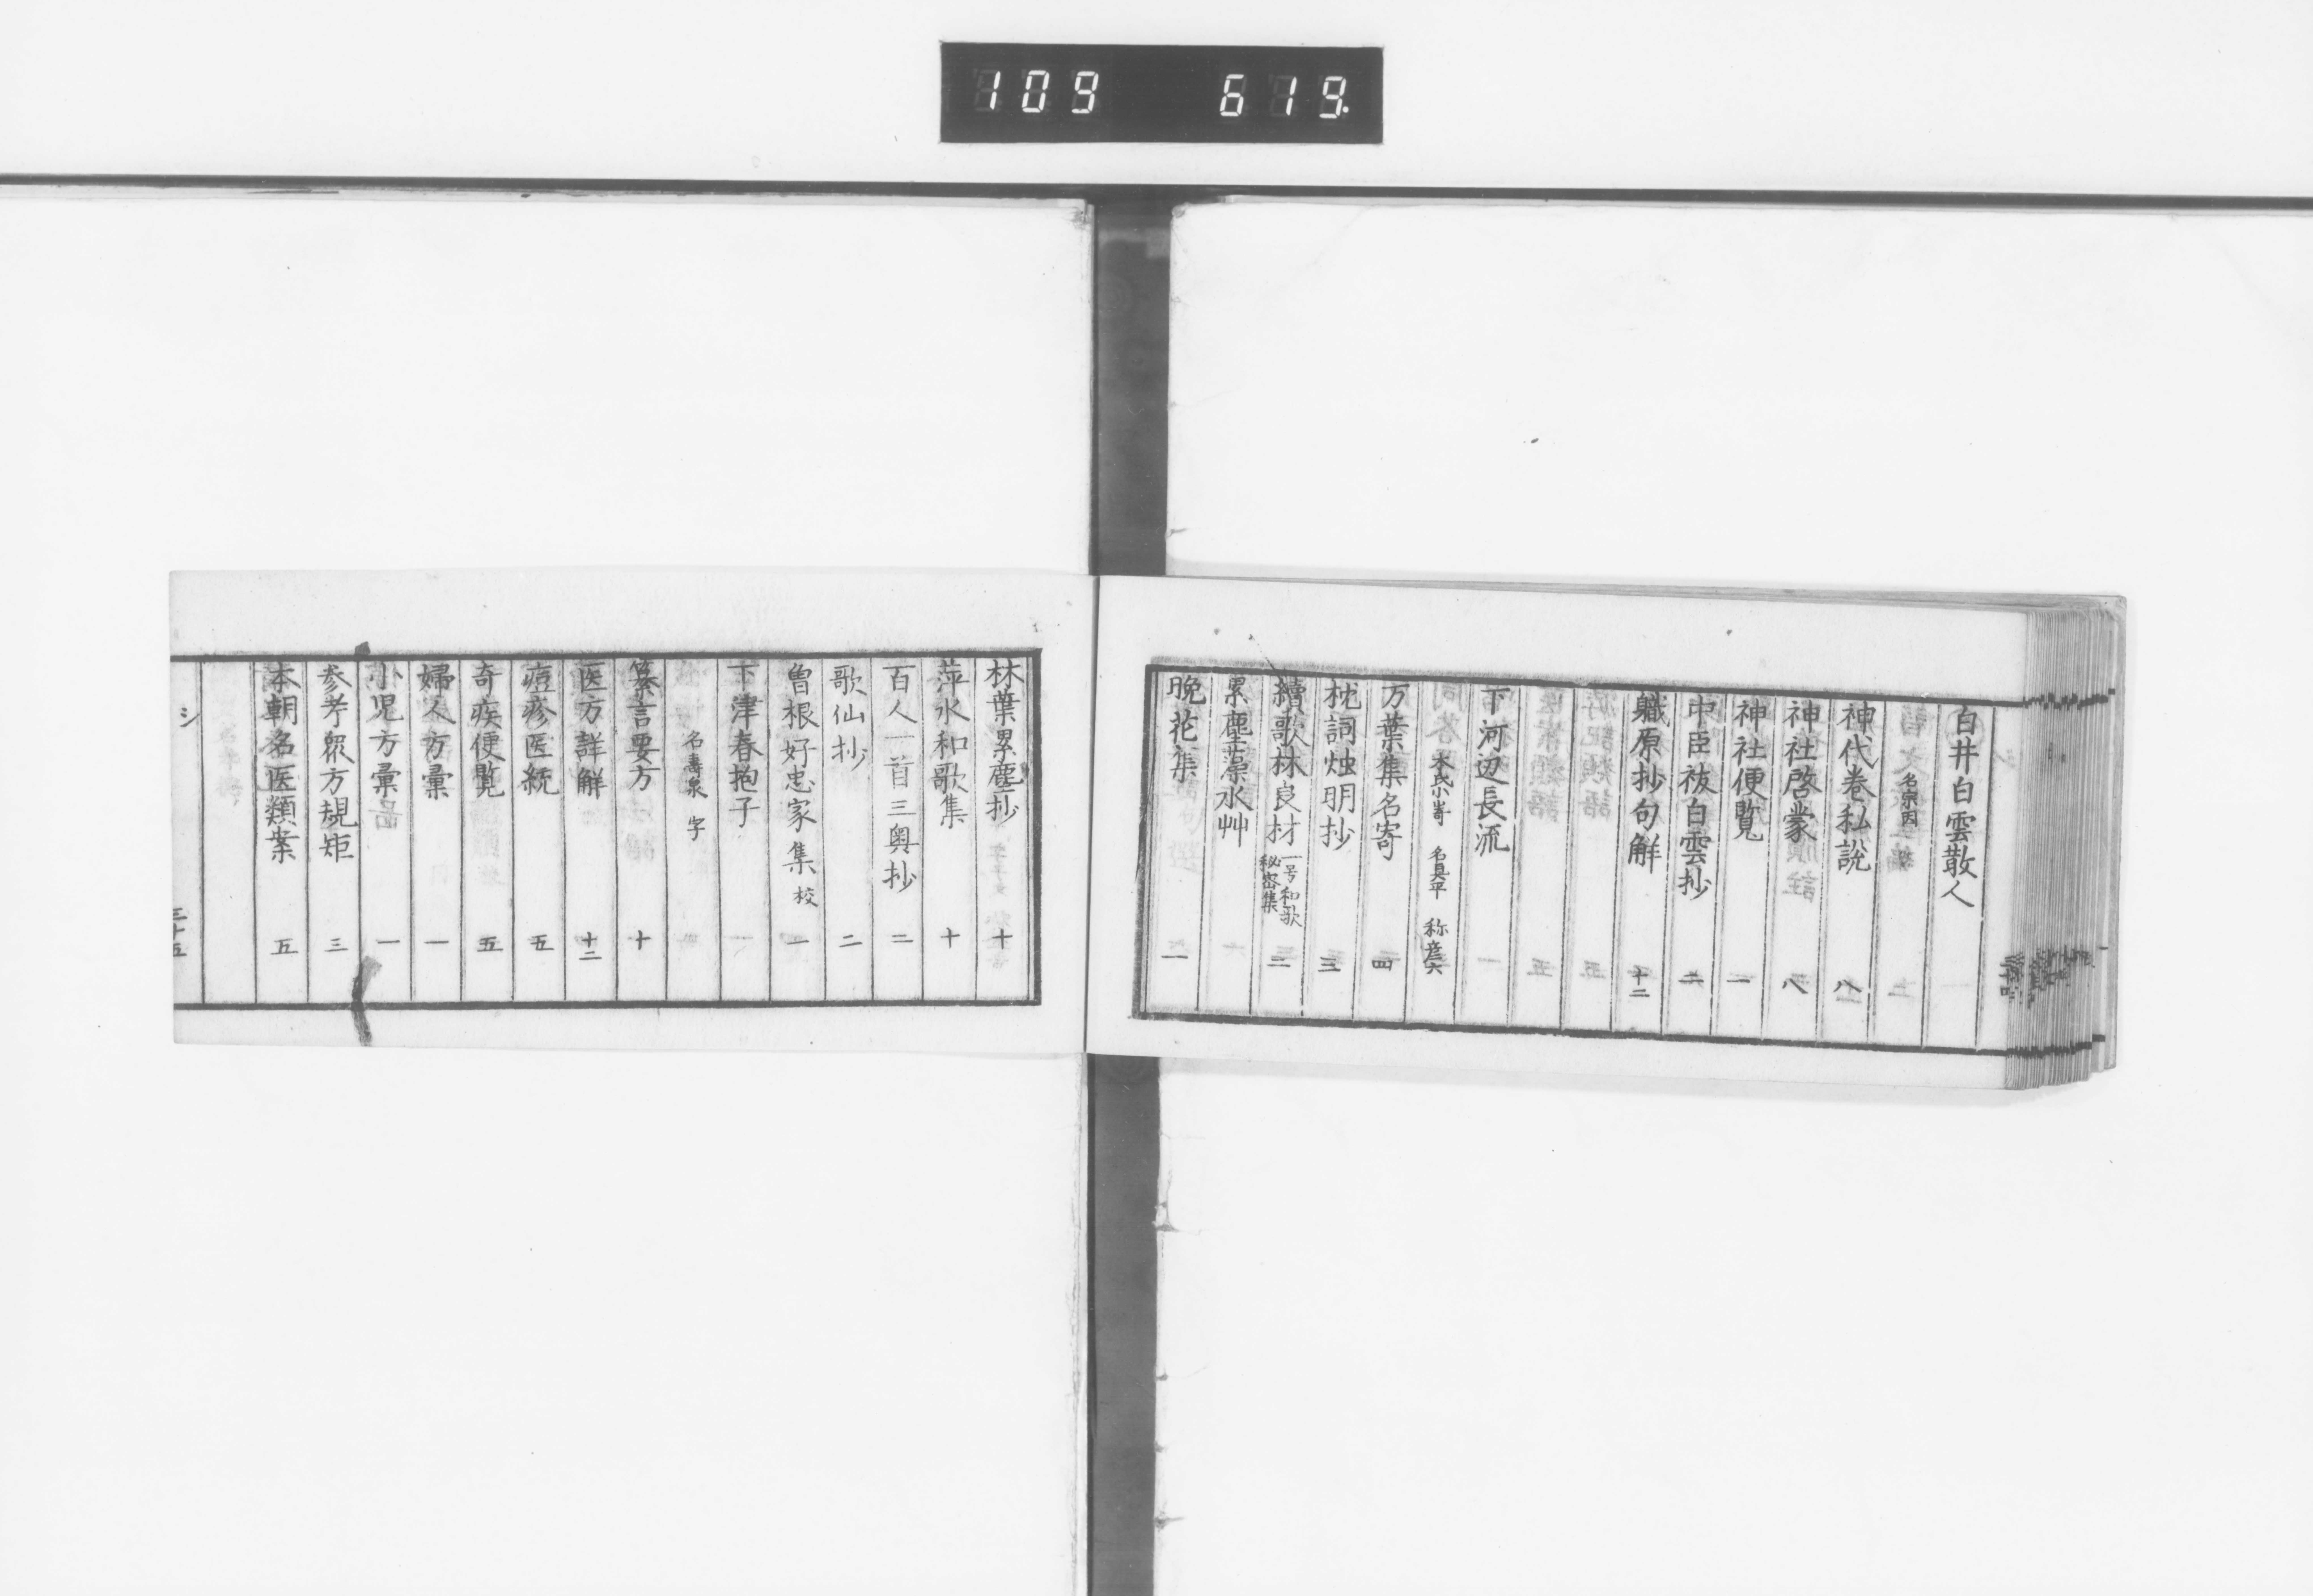 109 619.
白井白雲散人
名宗因
神代巻私説 八
神社啓蒙 八
神社便覧 一
中臣祓白雲抄 二
職原抄句解 十二
下河辺長流
本氏小嵜 名具平 称彦六
万葉集名寄 四
枕詞燭明抄 三
續歌林良材 一号和歌秘密集 二
累塵藻水艸
晩花集 二
林葉累塵抄 十
萍水和歌集 十
百人一首三奥抄 二
歌仙抄 二
曽根好忠家集 校 一
下津春抱子
名壽泉 字
纂言要方 十
医方詳解 十二
痘疹医統 五
奇疾便覧 五
婦人方彙 一
小児方彙 一
参考衆方規矩 三
本朝名医類案 五
シ 三十五